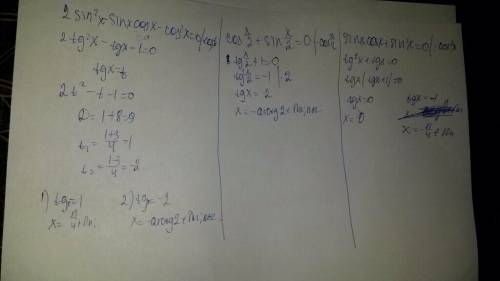 2 sin²x - sinx cosx - cos²x = 0
2 tg²x - tgx - 1 = 0
tgx = t
2t² - t - 1 = 0
D = 1 + 8 = 9
t₁ = (1+3)/4 = 1
t₂ = (1-3)/4 =
1) tgx = 1
x = π/4 + πn
2) tgx = -2
x = -arctg2 + πn; n∈z
cos x/2 + sin x/2 = 0 | cos x/2
tg x/2 + 1 = 0
tg x/2 = -1 | 2
tgx = 2
x = -arctg2 + πn; n∈z
sinx cosx + sin²x = 0 | cos²x
tg²x + tgx = 0
tgx (tgx+1) = 0
tgx = 0
x = 0
tgx = -1
x = -π/4 + πn